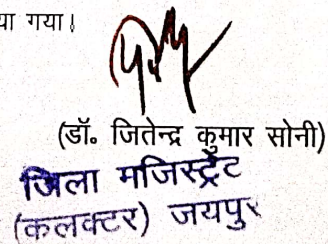 या गया।
(डॉ. जितेन्द्र कुमार सोनी)
जिला मजिस्ट्रेट
(कलक्टर) जयपुर